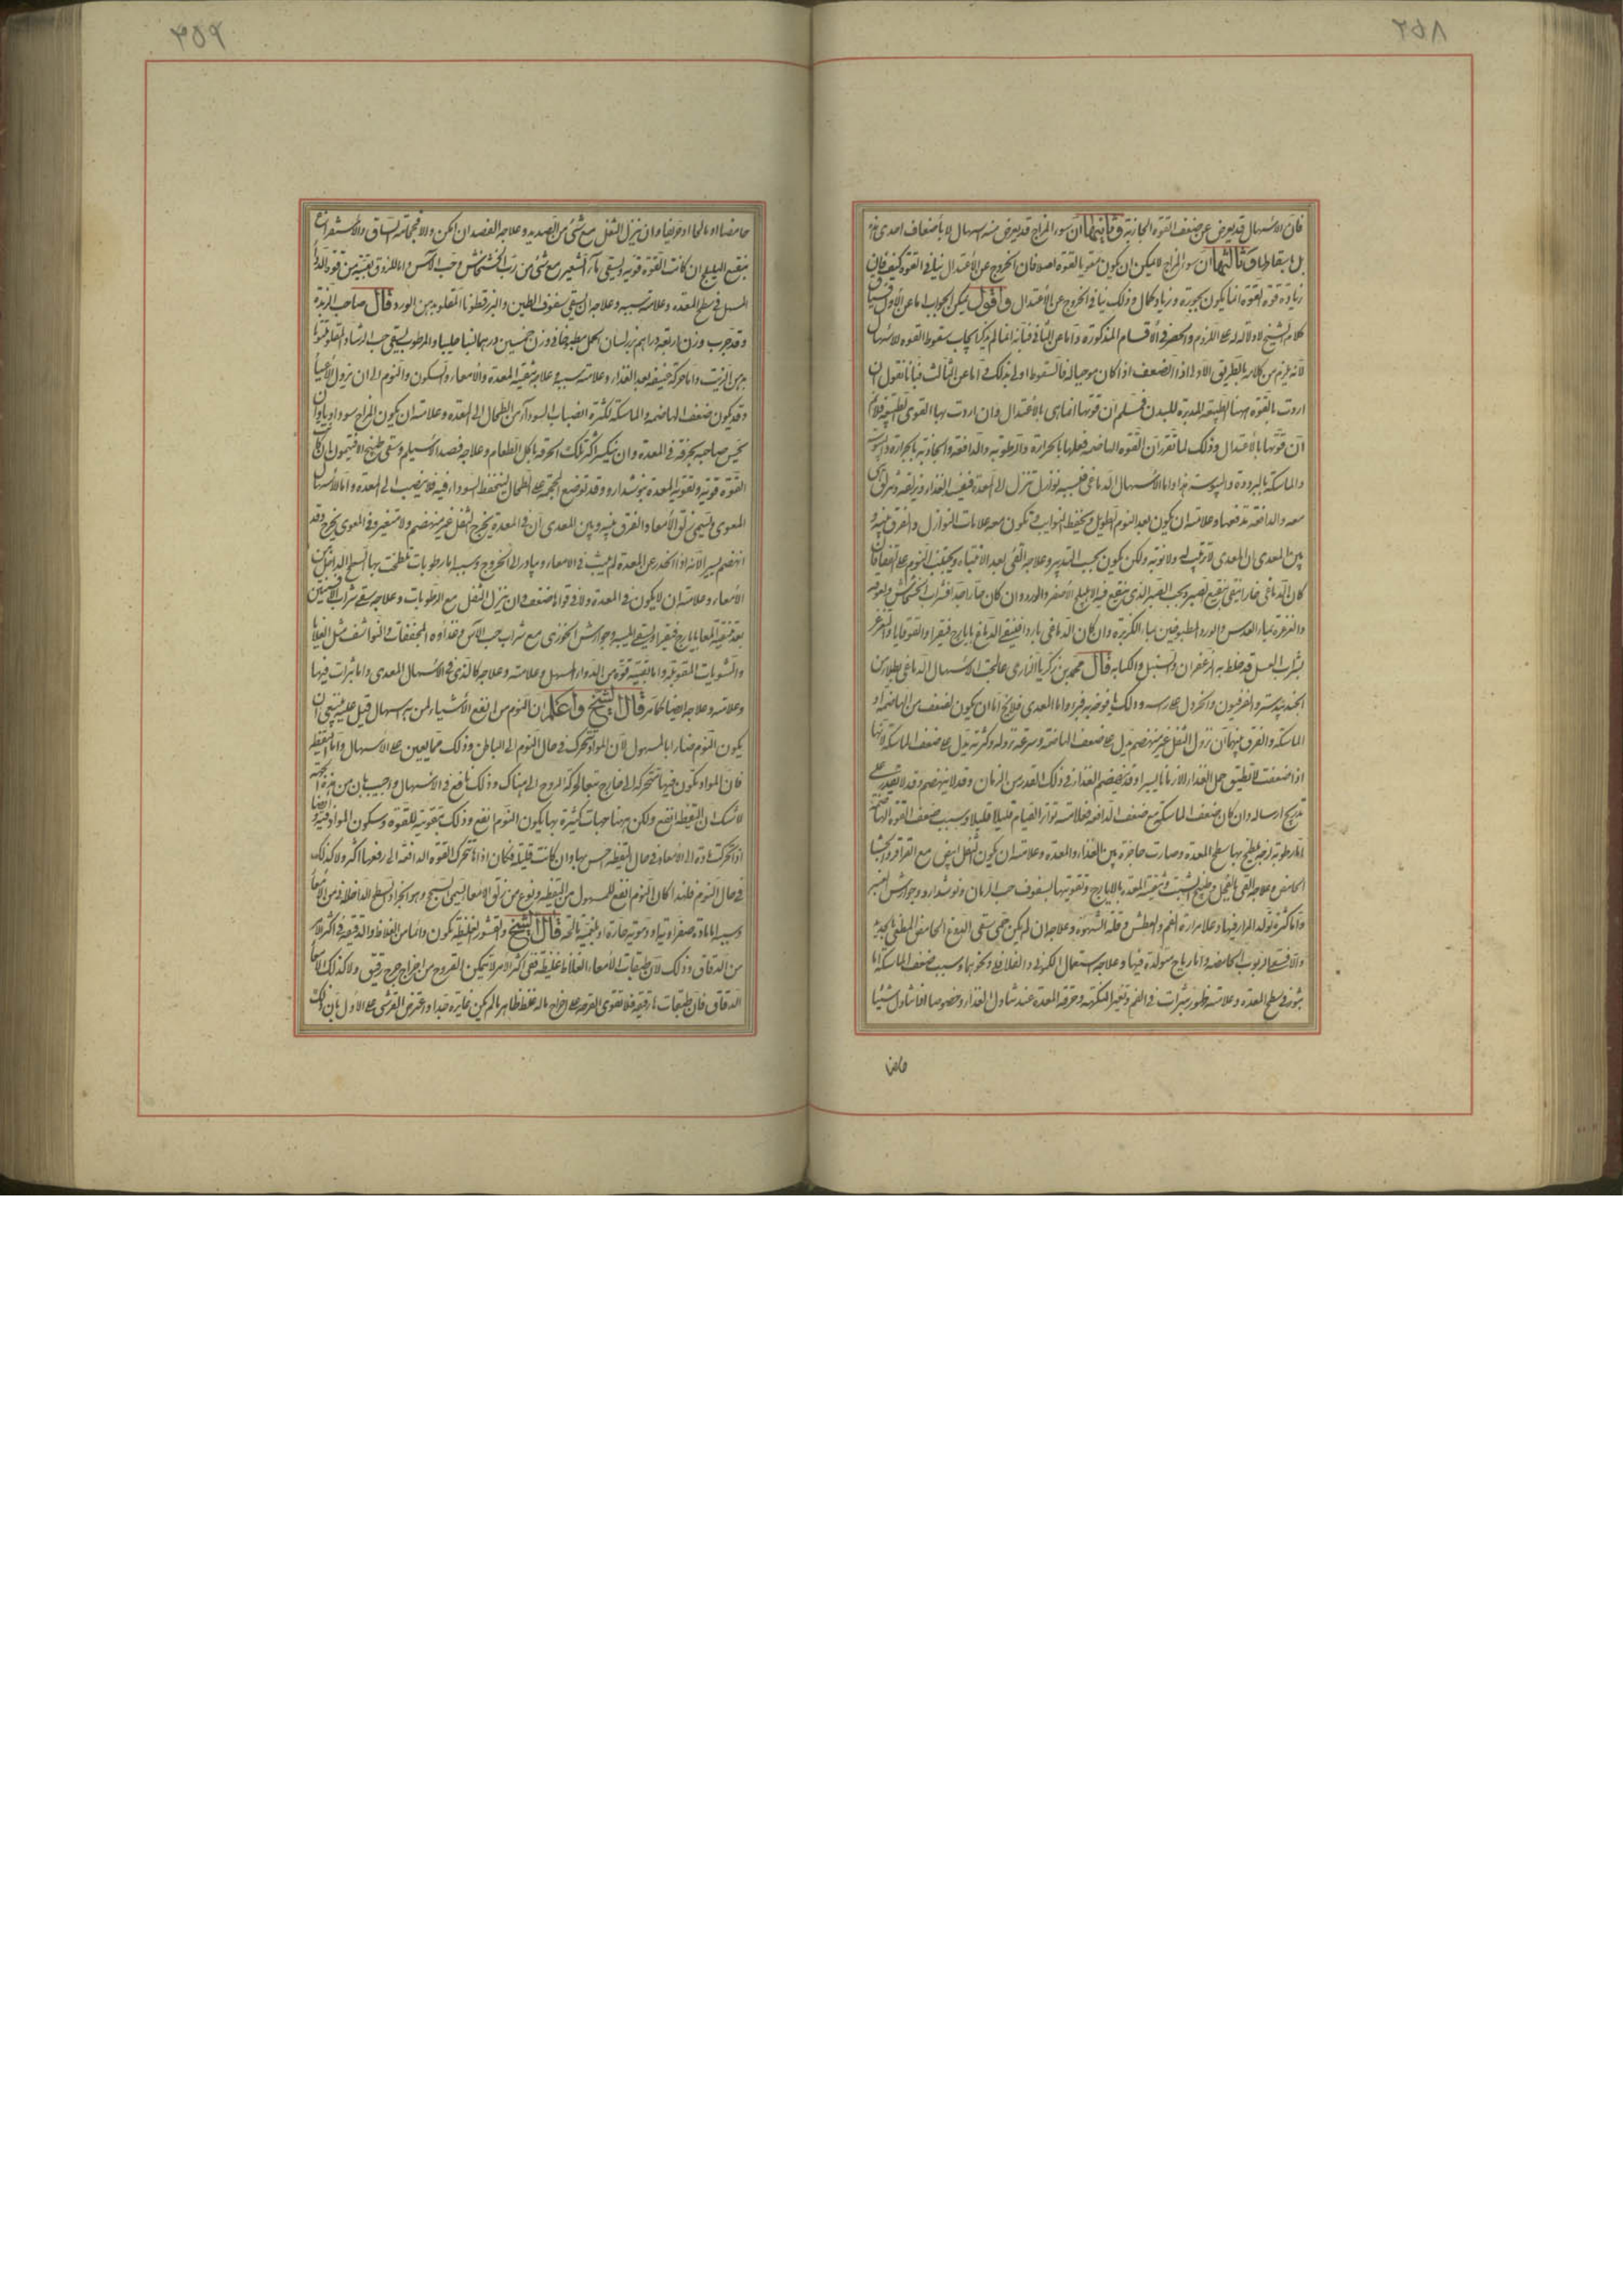 فان الاسهال قد يعرض عن ضعف القوة الجاذبة وثانيهما ان سوء المزاج قد يعرض منه اسهال لا باضعاف احدى هذه
بل باسقاطها وثالثهما ان سوء المزاج لا يمكن ان يكون مقويا للقوة اصلا فان الخروج عن الاعتدال ينافي القوة كيف فان
زيادة قوة القوة انما يكون بجودة وزيادة كمال وذلك ينافي الخروج عن الاعتدال واقول يمكن الجواب اما عن الاول
كلام الشيخ لا دلالة له على اللزوم والحصر في الاقسام المذكورة واما عن الثاني فبانه انما لم يذكر ايجاب سقوط القوة للاسهال
لانه يلزم من كلامه بالطريق الاولى اذ الضعف اذا كان موجبا له فالسقوط اولى بذلك واما عن الثالث فبانا نقول ان
اردت بالقوة ههنا الطبيعة المدبرة للبدن فمسلم ان قوتها انما هي بالاعتدال وان اردت بها القوى الطبيعية فلا نم
ان قوتها بالاعتدال وذلك لما تقرر ان القوة الهاضمة فعلها بالحرارة والرطوبة والدافعة والجاذبة بالحرارة واليبوسة
والماسكة بالبرودة واليبوسة هذا واما الاسهال الدماغي فسببه نوازل تنزل الى المعدة فيفسد الغذاء ويزلقه وينزلق هي
معه والدافعة تدفعها وعلامته ان يكون بعد النوم الطويل ويحفظ النوايب وتكون معه علامات النوازل والفرق بينه و
بين المعدي ان المعدي لا ترتيب له ولا نوبة ولكن يكون بحسب التدبير وعلاجه القيء بعد الانتباه ويجتنب النوم على القفا فان
كان الدماغي حارا ينقى بنقيع الصبر وبحب الصبر الذي ينقع فيه الاهليلج الاصفر والورد وان كان حارا جدا فشراب الخشخاش ولعوقه
والغرغرة بماء العدس والورد المطبوخين بماء الكزبرة وان كان الدماغي باردا فينقى الدماغ بايارج فيقرا والقوقايا والغرغر
بشراب العسل قد خلط به الزعفران والسنبل والكبابة قال محمد بن زكريا الرازي عالجت الاسهال الدماغي بطلاء من
الجندبيدستر والفرفيون والخردل على راسه والك يافوخه به فبرا واما المعدي فلا يخ اما ان يكون لضعف من الهاضمة او
الماسكة والفرق بينهما ان نزول الثفل غير منهضم يدل على ضعف الهاضمة وسرعة نزوله وكثرته يدل على ضعف الماسكة وانها
اذا ضعفت لا تطيق حمل الغذاء الا زمانا يسيرا وقد ينهضم الغذاء في ذلك القدر من الزمان وقد لا ينهضم وقد لا يقدر على
تدريج ارساله وان كان ضعف الماسكة مع ضعف الدافعة فعلامته تواتر القيام قليلا قليلا وسبب ضعف القوة الهاضمة
اما رطوبة لزجة يلطخ بها سطح المعدة وصارت حاجزة بين الغذاء والمعدة وعلامته ان يكون الثفل ابيض مع القراقر والجشا
الحامض وعلاجه القيء بالفجل وطبيخ الشبت وتنقية المعدة بالايارج وتقويتها بسفوف حب الرمان ونوشدارو وجوارش العنبر
واما كثرة تولد المرار فيها وعلامة مرارة الفم والعطش وقلة الشهوة وعلاجه ان لم يكن حمى سقي النقوع الحامض المطفي بالجدية
والا فسقي الربوب الحامضة واما رياح متولدة فيها وعلاجه استعمال الكموني والفلافلي ونحوهما وسبب ضعف الماسكة اما
بثور في سطح المعدة وعلامته ظهور بثرات في الفم وتغير النكهة وحرقة المعدة عند تناول الغذاء وخصوصا اذا تناول شيئا
حامضا
حامضا او مالحا او حريفا وان ينزل الثفل مع شيء من الصديد وعلاجه الفصد ان امكن والا فحجامة الساق والاستفراغ
بنقيع الهليلج ان كانت القوة قوية ويسقى ماء الشعير مع شيء من رب الخشخاش وحب الآس واما للزوق بقية من قوة الدواء
المسهل في سطح المعدة وعلامته سببه وعلاجه ان يسقى سفوف الطين والبزرقطونا المقلو بدهن الورد قال صاحب الزبدة
وقد جرب وزن اربعة دراهم بزر لسان الحمل مطبوخا في وزن خمسين درهما لبنا حليبا والمرطوب يسقى حب الرشاد المقلو ملتوتا
بدهن الزيت واما حركة عنيفة بعد الغذاء وعلامته سببه وعلاجه تنقية المعدة والامعاء والسكون والنوم الى ان يزول الاعياء
وقد يكون ضعف الهاضمة والماسكة لكثرة انصباب السوداء من الطحال الى المعدة وعلامته ان يكون المزاج سوداويا وان
يحس صاحبه بحرقة في المعدة وان ينكسر اكثر تلك الحرقة باكل الطعام وعلاجه فصد الاسيلم وسقي طبيخ الافتيمون ان كانت
القوة قوية وتقوية المعدة بنوشدارو وقد توضع المحجمة على الطحال لينحفظ السوداء فيه فلا ينصب الى المعدة واما الاسهال
المعوي ويسمى زلق الامعاء والفرق بينه وبين المعدي ان في المعدة يخرج الثفل غير منهضم ولا متغير وفي المعوي يخرج وقد
انهضم يسيرا لانه اذا انحدر عن المعدة لم يلبث في الامعاء ويبادر الى الخروج وسببه اما رطوبات تلطخت بها السطح الداخل من
الامعاء وعلامته ان لا يكون في المعدة ولا في قواها ضعف وان ينزل الثفل مع الرطوبات وعلاجه سقي شراب الافسنتين
بعد تنقية المعا بايارج فيقرا ويسقى الميبه وجوارش الخوزي مع شراب حب الآس وغذاؤه المجففات والنواشف مثل القلايا
والمشويات المتوبلة واما لبقية قوة من الدواء المسهل وعلامته وعلاجه كالذي في الاسهال المعدي واما بثرات فيها
وعلامته وعلاجه ايضا كما مر قال الشيخ واعلم ان النوم من انفع الاشياء لمن به اسهال قيل عليه ينبغي ان
يكون النوم ضارا بالمسهول لان المواد تتحرك في حال النوم الى الباطن وذلك مما يعين على الاسهال واما اليقظة
فان المواد تكون فيها متحركة الى خارج تبعا لحركة الروح الى هناك وذلك نافع في الاسهال واجيب بان من هذه الجهة
لا شك ان التيقظ انفع ولكن ههنا جهات كثيرة بها يكون النوم انفع وذلك بتقويته للقوة وسكون المواد فيه وايضا
اذا تحركت مادة الى الامعاء في حال اليقظة احس بها وان كانت قليلة فكان اذا ما تحرك القوة الدافعة الى دفعها اكثر ولا كذلك
في حال النوم فلهذا كان النوم انفع للمسهول من اليقظة ونوع من زلق الامعاء يسمى السحج وهو انجراد السطح الداخلاني من الامعاء
وسببه اما مادة صفراوية او دموية حارة او بلغمية مالحة قال الشيخ والقشور الغليظة تكون دائما من الغلاظ والدقيقة في اكثر الامر
من الدقاق وذلك لان طبقات الامعاء الغلاظ غليظة ففي اكثر الامر لا يتمكن القروح من اخراج جرم رقيق ولا كذلك الامعاء
الدقاق فان طبقاتها رقيقة فلا تقوى القرحة على اخراج ماله غلظ ظاهر ما لم يكن غايرة جدا واعترض القرشي على الاول بان ذلك